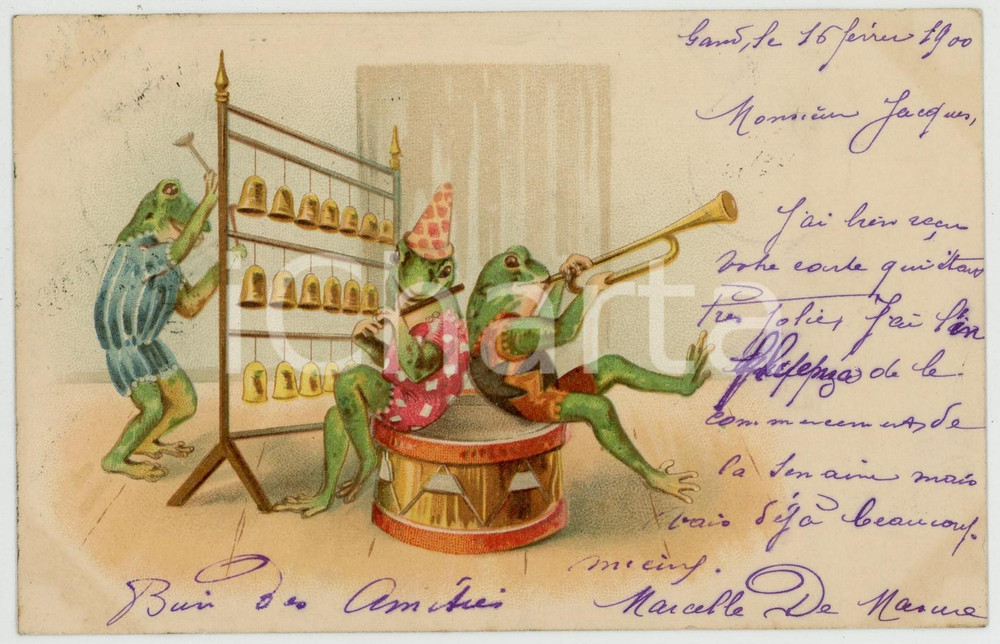 Gand, le 16 février 1900
Monsieur Jacques,
J'ai bien reçu
votre carte qui était
très jolie, J'ai
de la
commencement de
la semaine mais
vais déjà beaucoup
mieux.
Bien des Amitiés
Marcelle De
iCharta